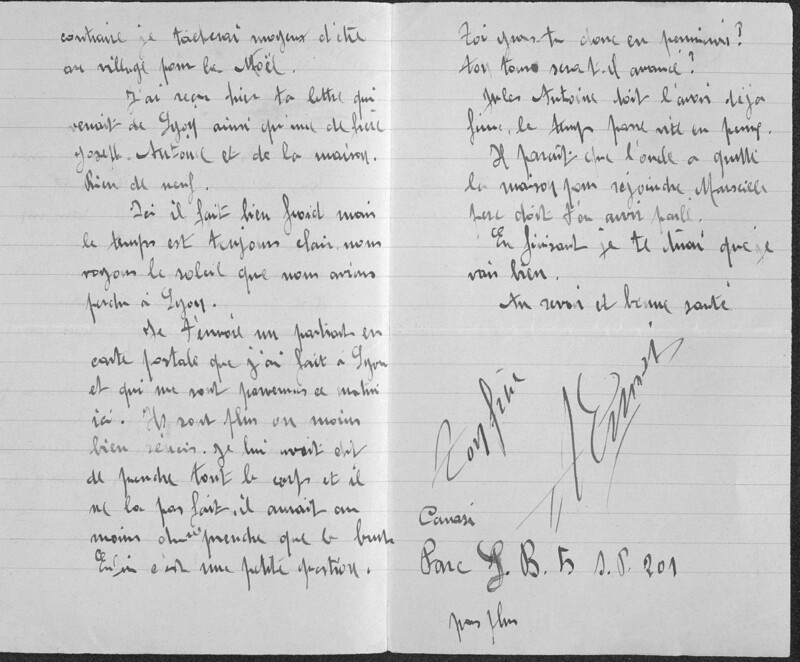 contraire je tacherai moyens d'être
au village pour la Noël.
J'ai reçu hier ta lettre qui
venait de Lyon ainsi qu'une de frère
Joseph. Antoine et de la maison.
Rien de neuf.
Ici il fait bien froid mais
le temps est toujours clair, nous
voyons le soleil que nous avions
perdu à Lyon.
Je t'envoie un portrait en
carte postale que j'ai fait à Lyon
et qui me sont parvenus ce matin
ici. Ils sont plus ou moins
bien réussis. Je lui avait dit
de prendre tout le corps et il
ne la pas fait, il aurait au
moins du prendre que le buste
Enfin c'est une petite question.
Toi donc en permission?
ton tour sera t-il avancé?
Jules Antoine doit l'avoir déja
finie, le temps passe vite en perm.
Il paraît que l'oncle a quitté
la maison pour rejoindre Marseille
père doit t'en avoir parlé.
En finissant je te dirai que je
vais bien.
Au revoir et bonne santé
Ton frère
Parc L. B. 5 S.P. 201
pas plus